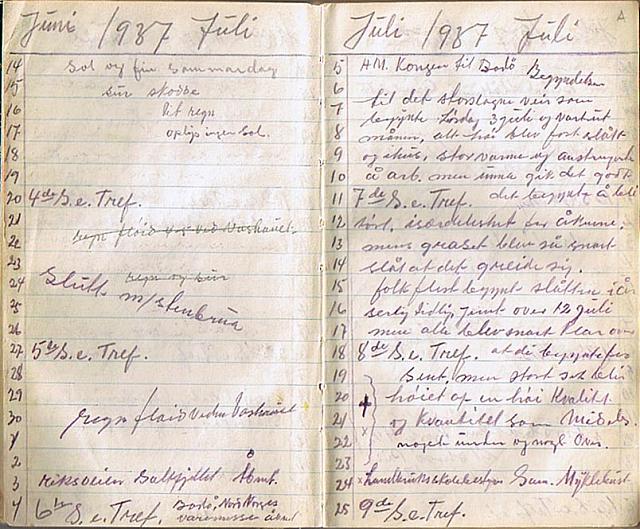 Juni 1937 Juli
14 Sol og fin Sommardag
15 sur skodde
16 Litt regn
17 opl. ingen Sol.
18
19
20 4de S. e. Tref.
21
22 regn flaid ved Vashauet
23
24 Slutt regn og sur
25 m/stenbrua
26
27 5te S. e. Tref.
28
29
30 regn flaid Vashauet
1
2
3 riksveien Saltfjellet åbnt.
4 6te S. e. Tref. Bodø, Nord Norges varemesse åbnet
Juli 1937 Juli
A
5 H.M. Kongen til Bodø Begyndelsen
6
7 til det storslagne veir som
begynte Lørdag 3 juli og varte ut
8 månen, alt høi blev fort slått
9 og ihus, stor varme og
10 å arb. men inna gik det godt
11 7de S. e. Tref. det begynte å bli
12 tørt, isærdeleshet for åkrane,
13 mens graset blev så snart
14 slåt at det greide sig.
15 folk flest begynt slåtten i år
16 serlig tidlig, jamt over 12 juli
17 men alle blev snart klar over
18 8de S. e. Tref. at de begynte for
19 Sent, men stort set blir
20 høiet af en høi Kvalitet
21 og Kvantitet som Midels
22 noget under og nogl Over.
23
24 Landbruksskolebestyr. Sam. Myklebust
25 9de S. e. Tref.